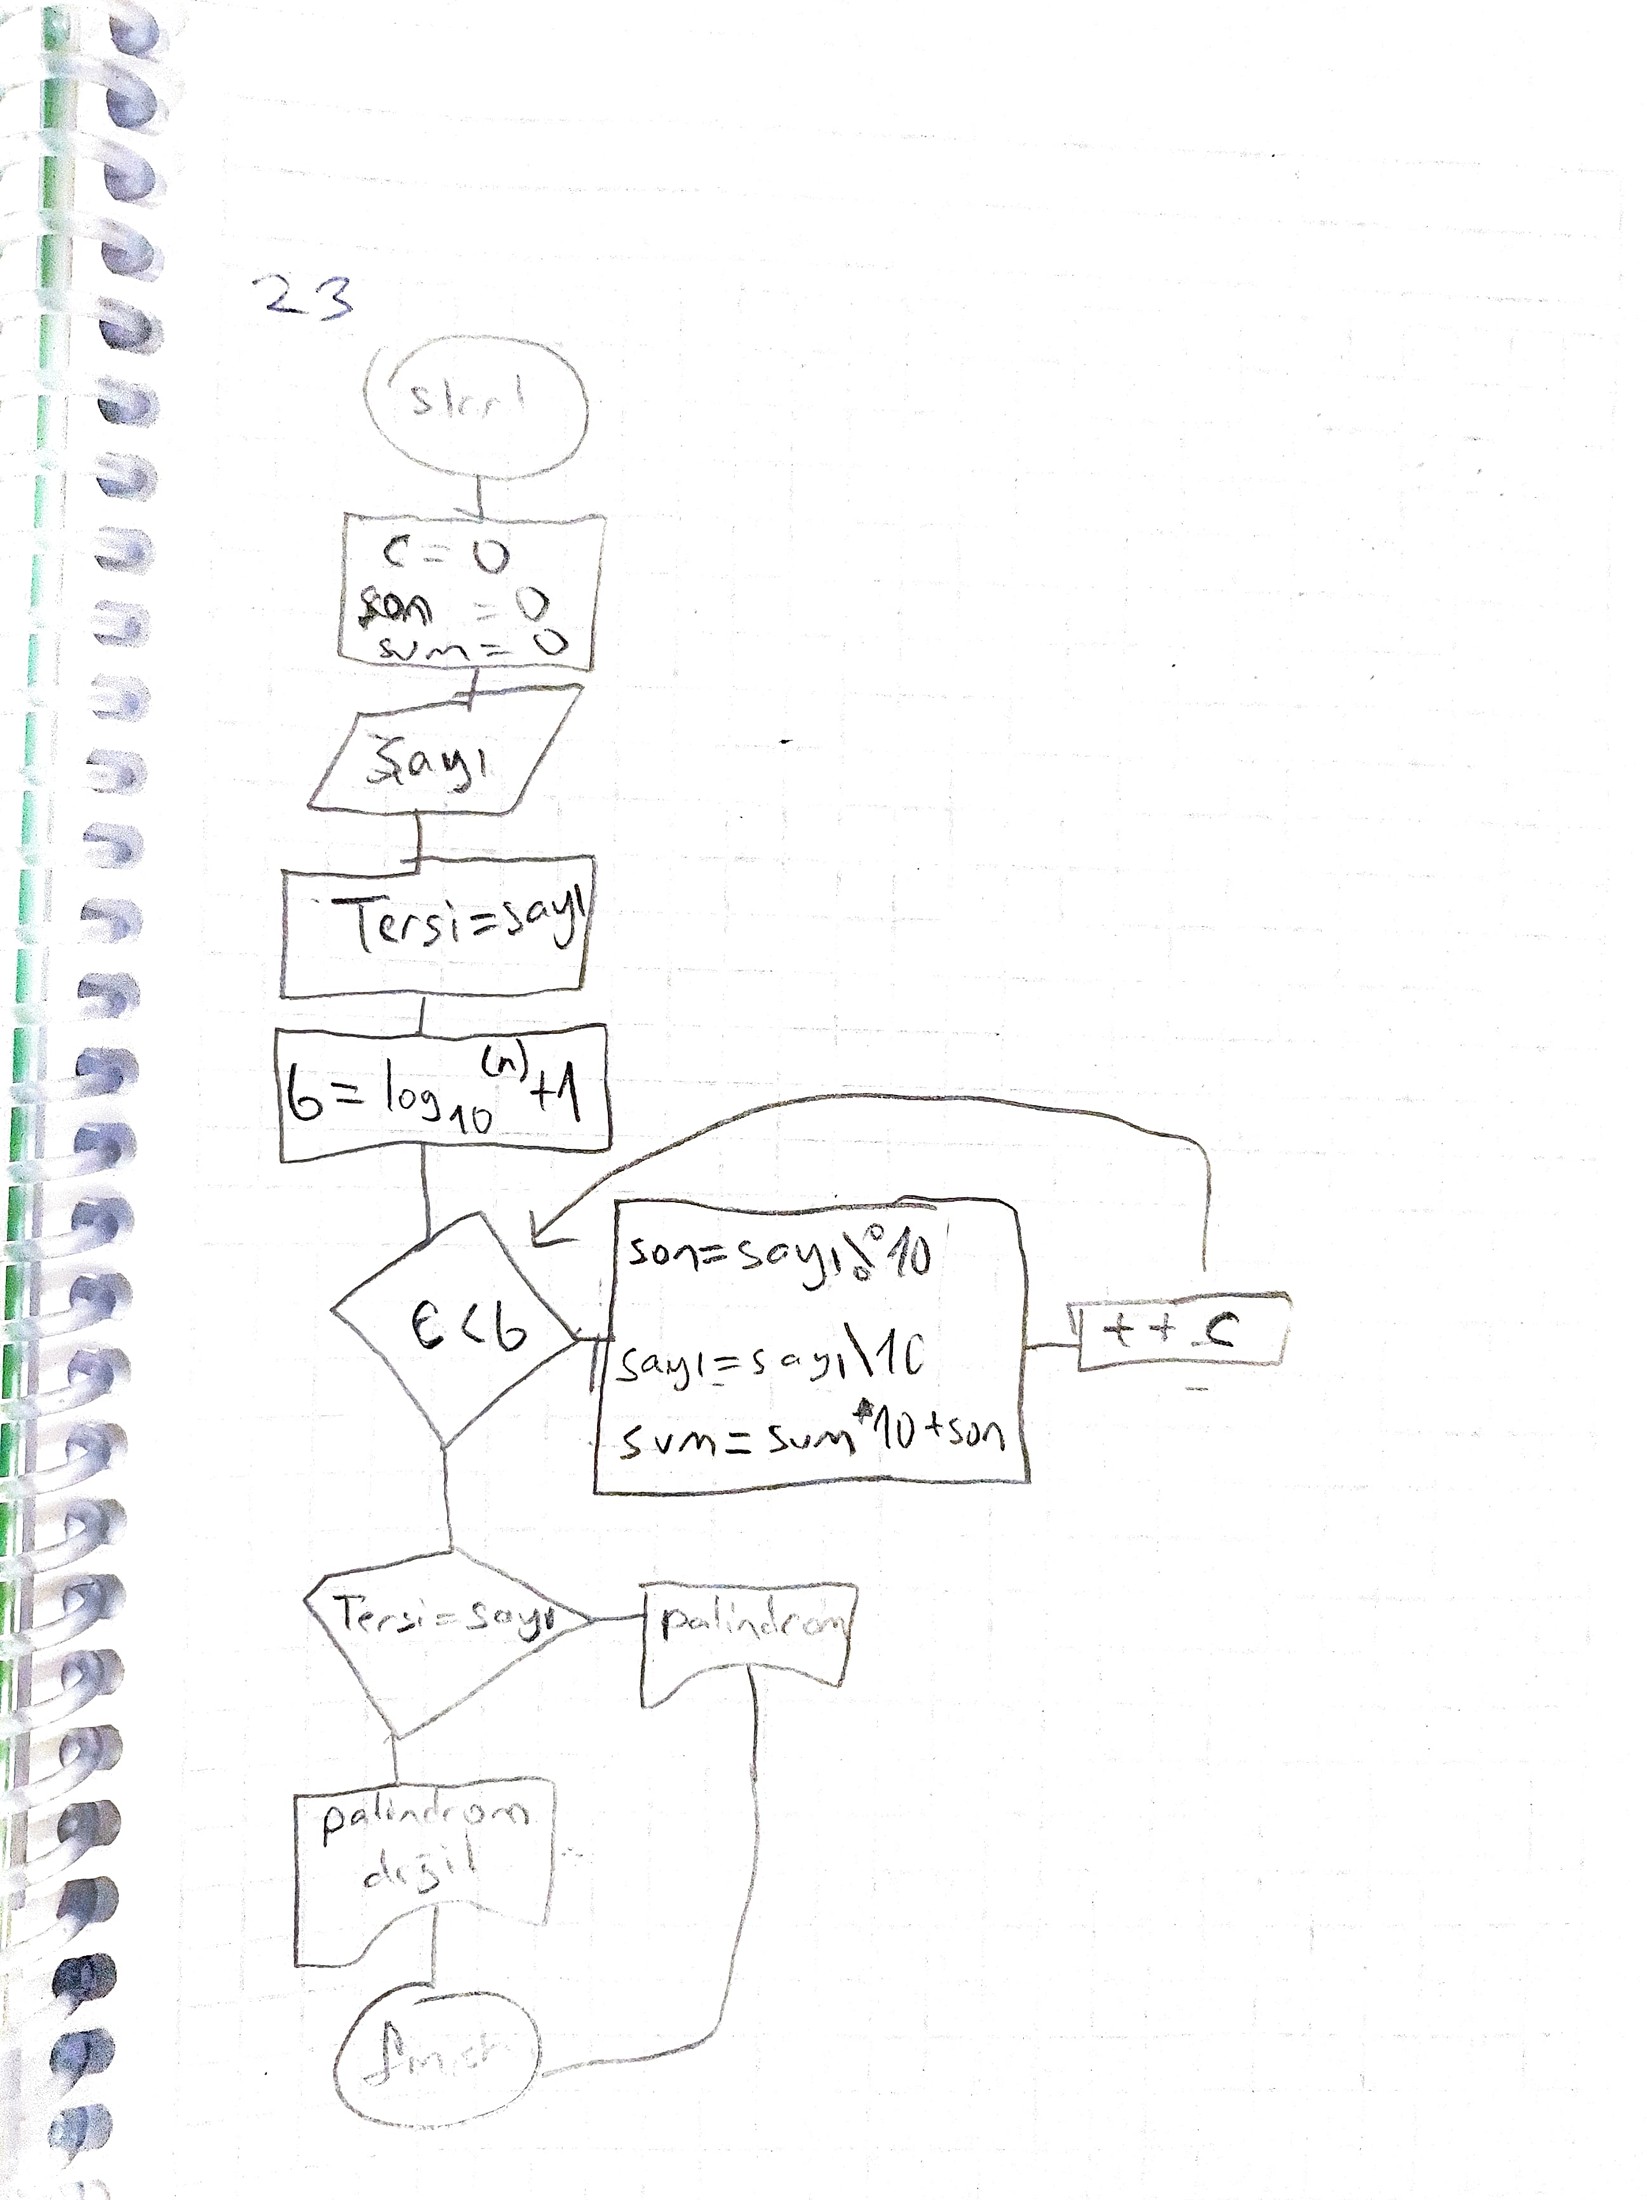 23
start
c = 0
son = 0
sum = 0
Sayı
Tersi=sayı
b = log10 (n) +1
c < b
son=sayı%10
sayı=sayı\10
sum = sum*10+son
++c
Tersi=sayı
palindrom
palindrom
değil
finish